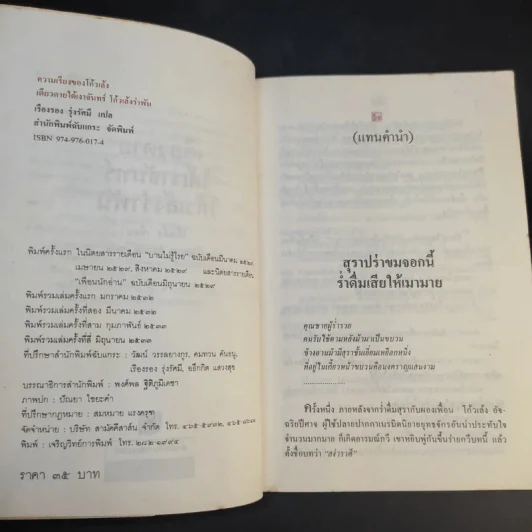 ความเรียงของโก้วเล้ง
เดียวดายใต้เงาจันทร์ โก้วเล้งรำพัน
เรืองรอง รุ่งรัศมี แปล
สำนักพิมพ์ฉับแกระ จัดพิมพ์
ISBN 974-976-017-4
พิมพ์ครั้งแรก ในนิตยสารรายเดือน "บานไม่รู้โรย" ฉบับเดือนมีนาคม ๒๕๒๙,
เมษายน ๒๕๒๙, สิงหาคม ๒๕๒๙ และนิตยสารรายเดือน
"เพื่อนนักอ่าน" ฉบับเดือนมิถุนายน ๒๕๒๙
พิมพ์รวมเล่มครั้งแรก มกราคม ๒๕๓๒
พิมพ์รวมเล่มครั้งที่สอง มีนาคม ๒๕๓๒
พิมพ์รวมเล่มครั้งที่สาม กุมภาพันธ์ ๒๕๓๓
พิมพ์รวมเล่มครั้งที่สี่ มิถุนายน ๒๕๓๓
ที่ปรึกษาสำนักพิมพ์ฉับแกระ : วัฒน์ วรรลยางกูร, คมทวน คันธนู,
เรืองรอง รุ่งรัศมี, อธึกกิต แสวงสุข
บรรณาธิการสำนักพิมพ์ : พงศ์พล ฐิติภูมิเดชา
ภาพปก : ปัณยา ไชยะคำ
ที่ปรึกษากฎหมาย : สมหมาย แรงครุฑ
จัดจำหน่าย : บริษัท สามัคคีสาส์น จำกัด โทร.
พิมพ์ : เจริญวิทย์การพิมพ์ โทร. ๒๘๒-๑๙๙๔
ราคา ๓๕ บาท
(แทนคำนำ)
สุราปร่าขมจอกนี้
ร่ำดื่มเสียให้เมามาย
คุณชายผู้ร่ำรวย
คนรับใช้ตามหลังม้ามาเป็นขบวน
ข้างอานม้ามีสุราชั้นเยี่ยมเหยือกหนึ่ง
ที่อยู่ในเกี้ยวหน้าขบวนคือนงคราญแสนงาม
....................
ครั้งหนึ่ง ภายหลังจากร่ำดื่มสุรากับผองเพื่อน โก้วเล้ง อัจ-
ฉริยปีศาจ ผู้ใช้ปลายปากกาเนรมิตนิยายยุทธจักรอันน่าประทับใจ
จำนวนมากมาย ก็เกิดอารมณ์กวี เขาหยิบพู่กันขึ้นร่ายกวีบทนี้ แล้ว
ตั้งชื่อบทว่า